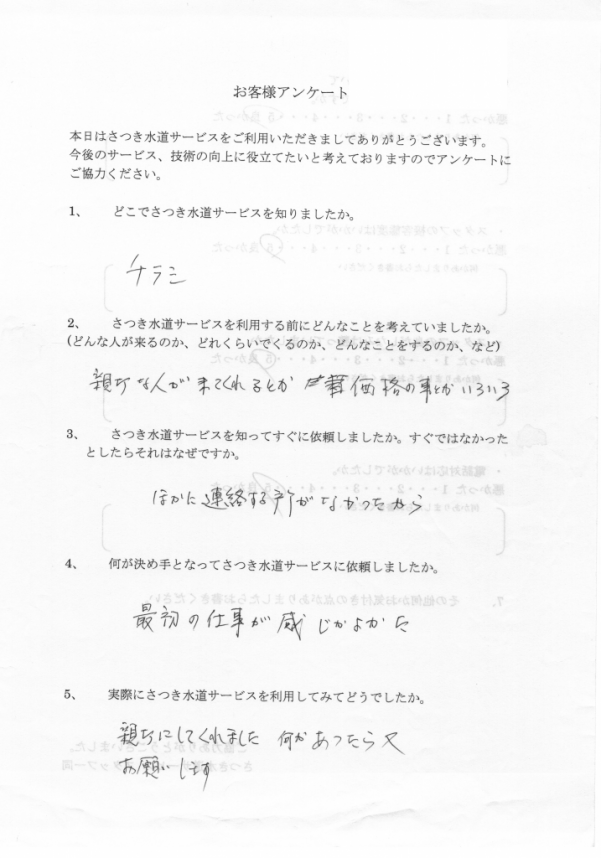 お客様アンケート
本日はさつき水道サービスをご利用いただきましてありがとうございます。
今後のサービス、技術の向上に役立てたいと考えておりますのでアンケートに
ご協力ください。
1、 どこでさつき水道サービスを知りましたか。
チラシ
2、 さつき水道サービスを利用する前にどんなことを考えていましたか。
(どんな人が来るのか、どれくらいでくるのか、どんなことをするのか、など)
親切な人が来てくれるとか 価格の事とかいろいろ
3、 さつき水道サービスを知ってすぐに依頼しましたか。すぐではなかった
としたらそれはなぜですか。
ほかに連絡する所がなかったから
4、 何が決め手となってさつき水道サービスに依頼しましたか。
最初の仕事が感じがよかった
5、 実際にさつき水道サービスを利用してみてどうでしたか。
親切にしてくれました 何かあったら又
お願いします